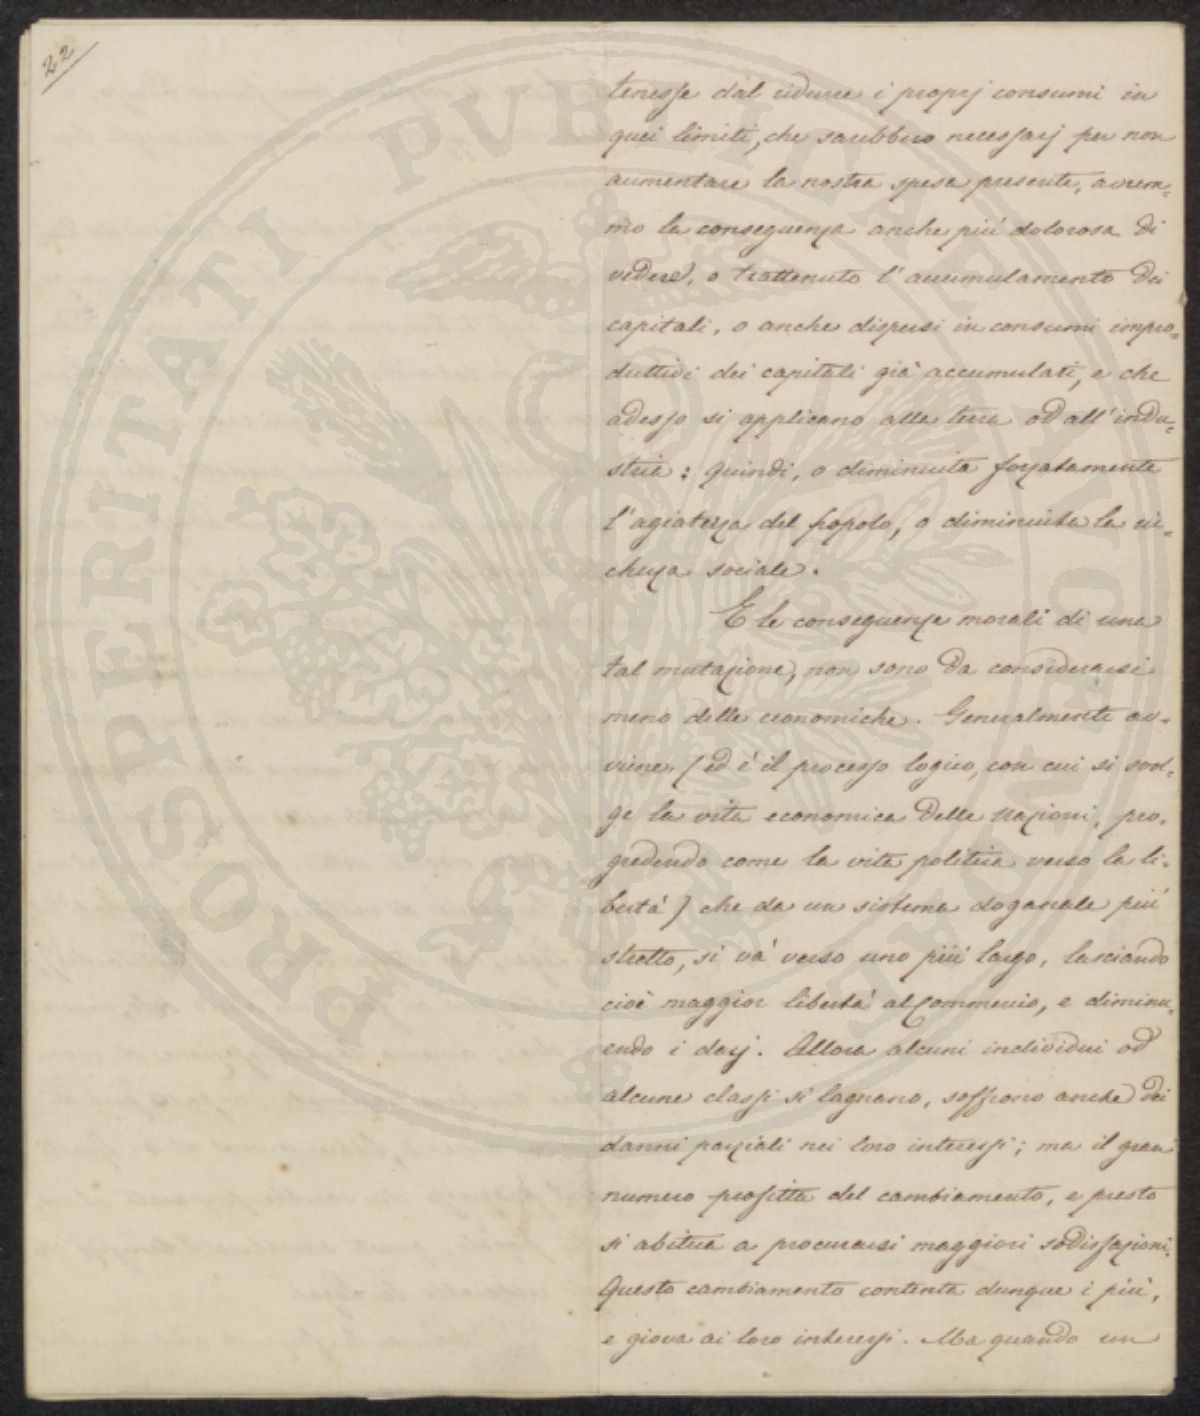 22
tenesse dal ridurre i proprj consumi in
quei limiti, che sarebbero necessarj per non
aumentare la nostra spesa presente, avrem=
mo la conseguenza anche più dolorosa di
vedere, o trattenuto l'accumulamento dei
capitali, o anche dispersi in consumi impro=
duttivi dei capitali già accumulati, e che
adesso si applicano alla terra od all'indu=
stria: quindi, o diminuita forzatamente
l'agiatezza del popolo, o diminuita la ric=
chezza sociale.
E le conseguenze morali di una
tal mutazione, non sono da considerarsi
meno delle economiche. Generalmente av=
viene, (ed è il processo logico, con cui si svol=
ge la vita economica delle Nazioni, pro=
gredendo come la vita politica verso la li=
bertà) che da un sistema doganale più
stretto, si và verso uno più largo, lasciando
cioè maggior libertà al Commercio, e diminu=
endo i dazj. Allora alcuni individui od
alcune classi si lagnano, soffrono anche dei
danni parziali nei loro interessi; ma il gran
numero profitta del cambiamento, e presto
si abitua a procurarsi maggiori sodisfazioni.
Questo cambiamento contenta dunque i più,
e giova ai loro interessi. Ma quando un
PROSPERITATI PUBLICAE AUGENDAE